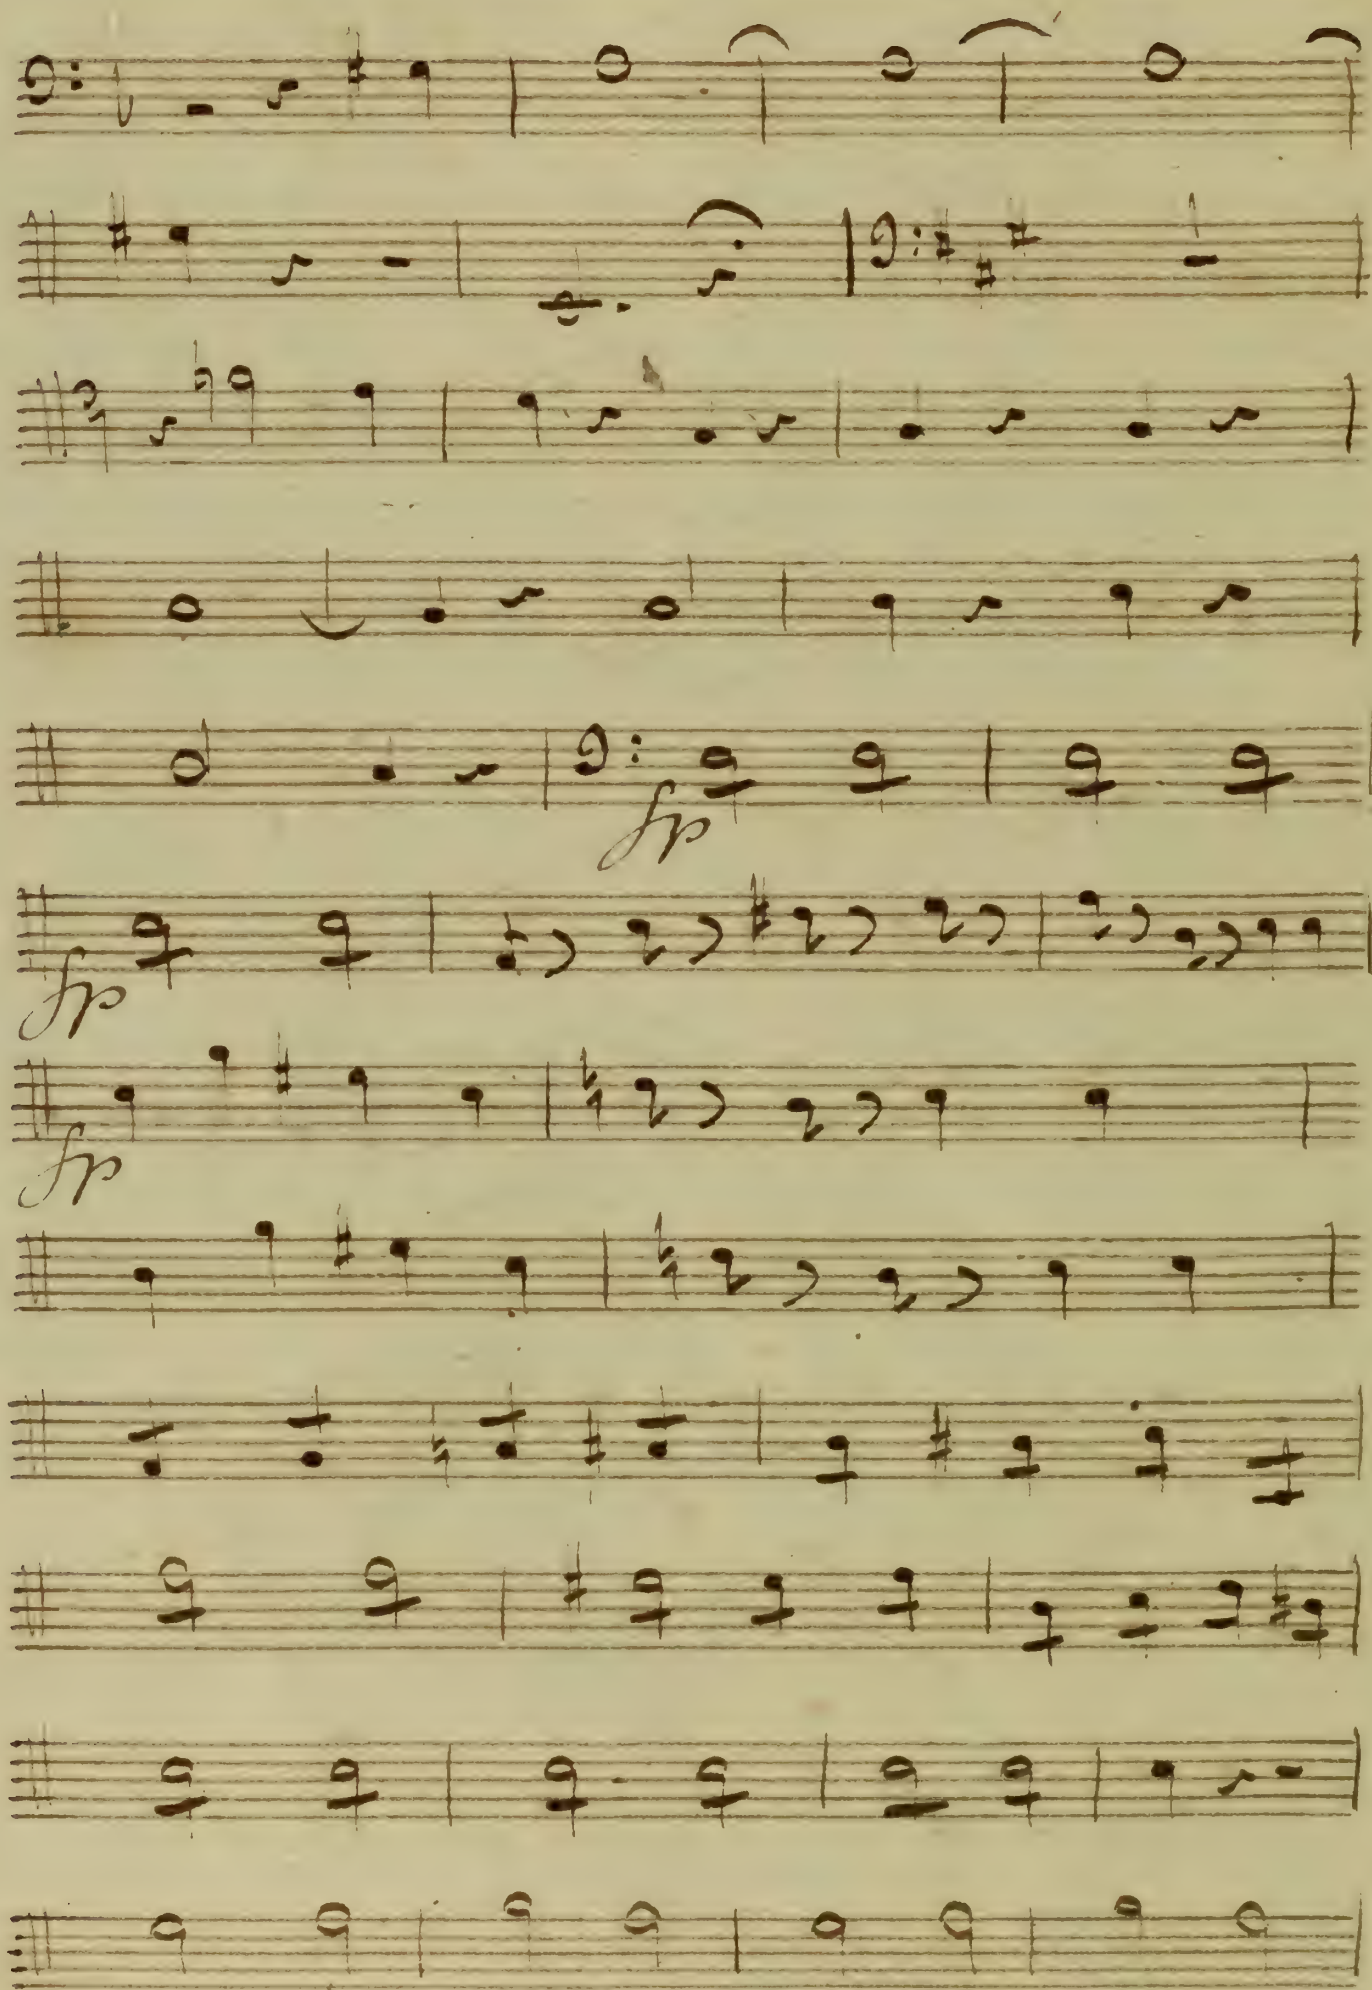 fp
fp
fp